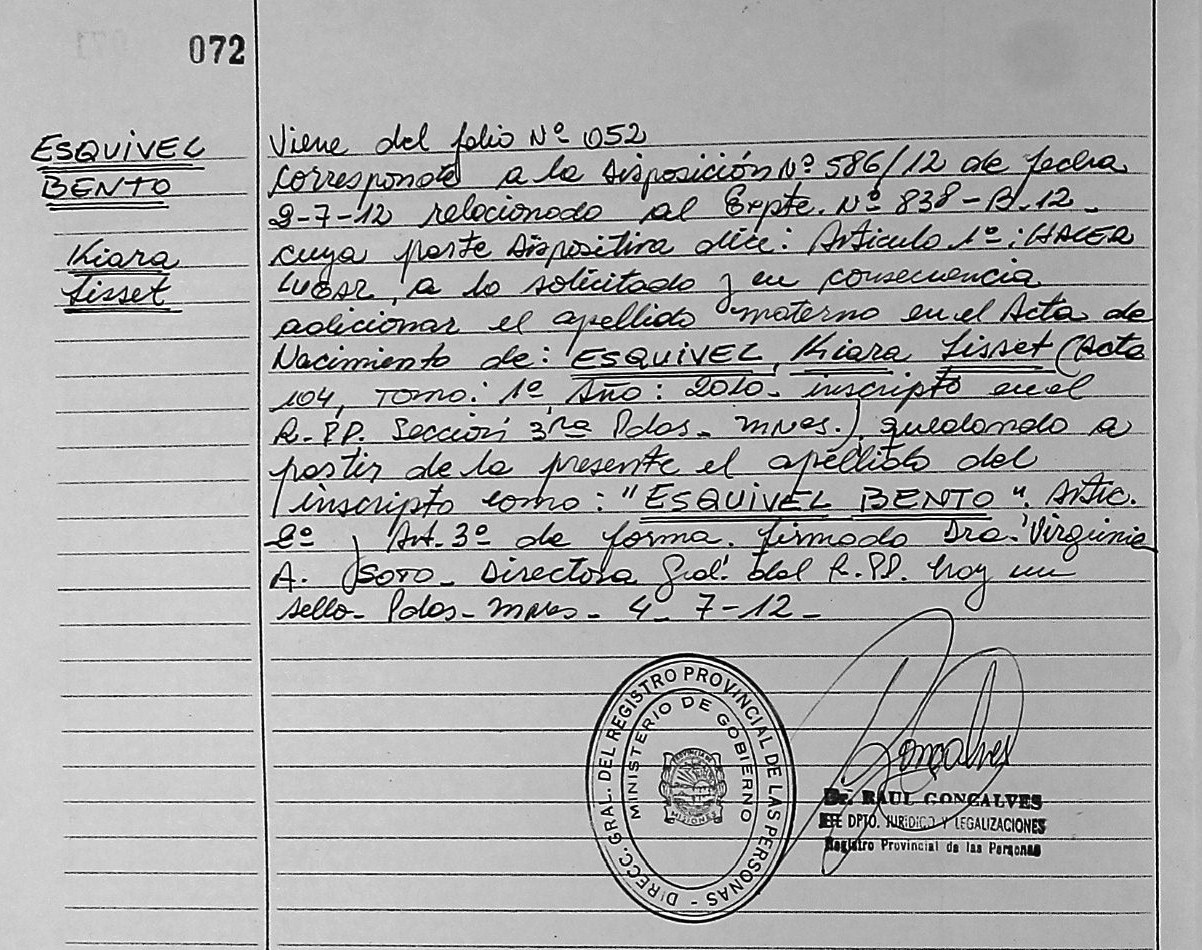 072
ESQUIVEL
BENTO
Kiara
Lisset
Viene del folio Nº 052
correspondte a la Disposición Nº 586/12 de fecha
2-7-12 relacionado al Expte. Nº 838-B-12-
cuya parte Dispositiva dice: Articulo 1º: HACER
LUGAR, a lo solicitado y en consecuencia
adicionar el apellido materno en el Acta de
Nacimiento de: ESQUIVEL, Kiara Lisset (Acta
104, Tomo: 1º, Año: 2010- inscripto en el
R.PP. Sección 3ra Pdas- Mnes.) quedando a
partir de la presente el apellido del
inscripto como: "ESQUIVEL BENTO". Artic.
2º y Art. 3º de forma. Firmado Dra. Virginia
A. SOTO- Directora Gral. del R.PP. hay un
sello- Pdas- Mnes- 4-7-12-
DIRECC. GRAL. DEL REGISTRO PROVINCIAL DE LAS PERSONAS -
MINISTERIO DE GOBIERNO
MISIONES
Gonçalves
Dr. RAUL GONÇALVES
JEFE DPTO. JURIDICO Y LEGALIZACIONES
Registro Provincial de las Personas